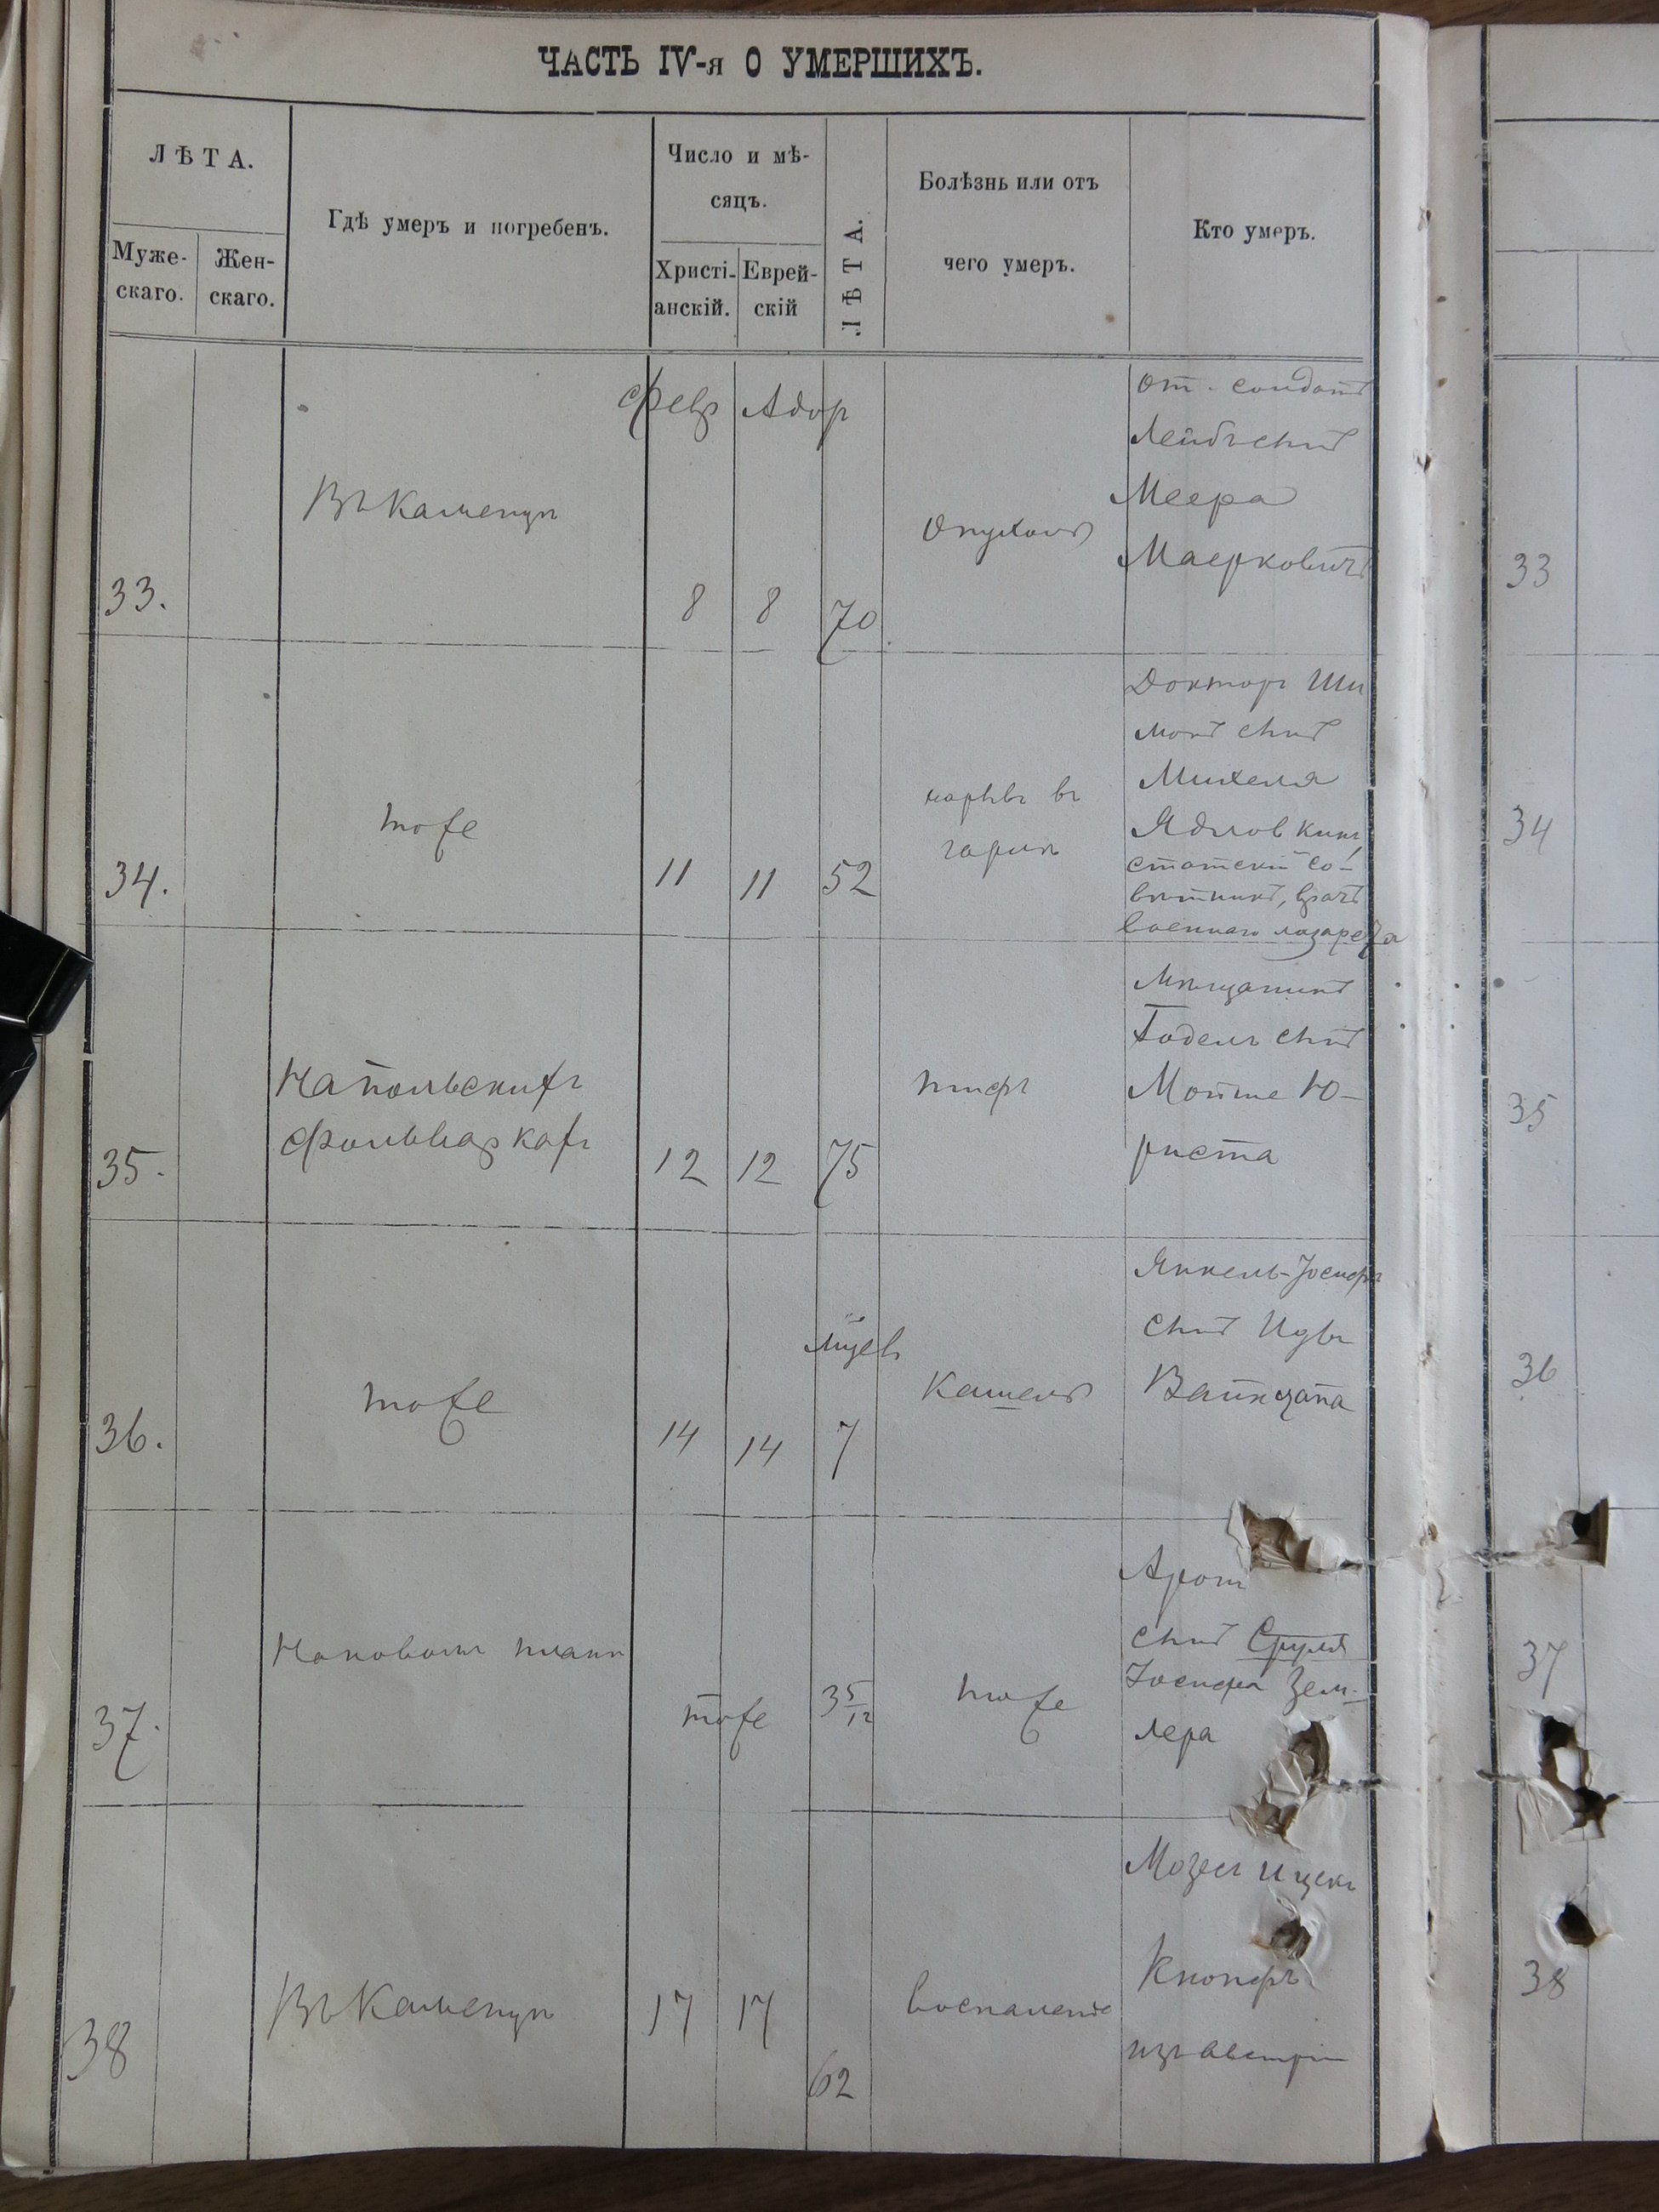 ЧАСТЬ IV-я О УМЕРШИХЪ.
ЛѢТА.
Муже-
скаго.
Жен-
скаго.
Гдѣ умеръ и погребенъ.
Число и мѣ-
сяцъ.
Христі-
анскій.
Еврей-
скій
ЛѢТА.
Болѣзнь или отъ
чего умеръ.
Кто умеръ.
33.
Въ Каменцѣ
Февр
8
Адор
8
70
Опухоль
От. солдатъ
Лейбъ сынъ
Меера
Маерковичъ
33
34.
тоже
11
11
52
нарывъ въ
Докторъ Ши
монъ сынъ
Михеля
статскій со-
вѣтникъ, врачъ
военнаго лазарета
34
35.
На польскихъ
фольваркахъ
12
12
75
тифъ
Мѣщанинъ
Годель сынъ
Мойше Ю-
риста
35
36.
тоже
14
14
мцевъ
7
Кашель
Янкель-Іосифъ
сынъ
36
37.
На новомъ планѣ
тоже
3 5/12
тоже
Аронъ
сынъ Сруля
Іосифа Зем-
лера
37
38
Въ Каменцѣ
17
17
62
воспаленіе
Мозесъ Ицекъ
Кнопфъ
изъ Австріи
38